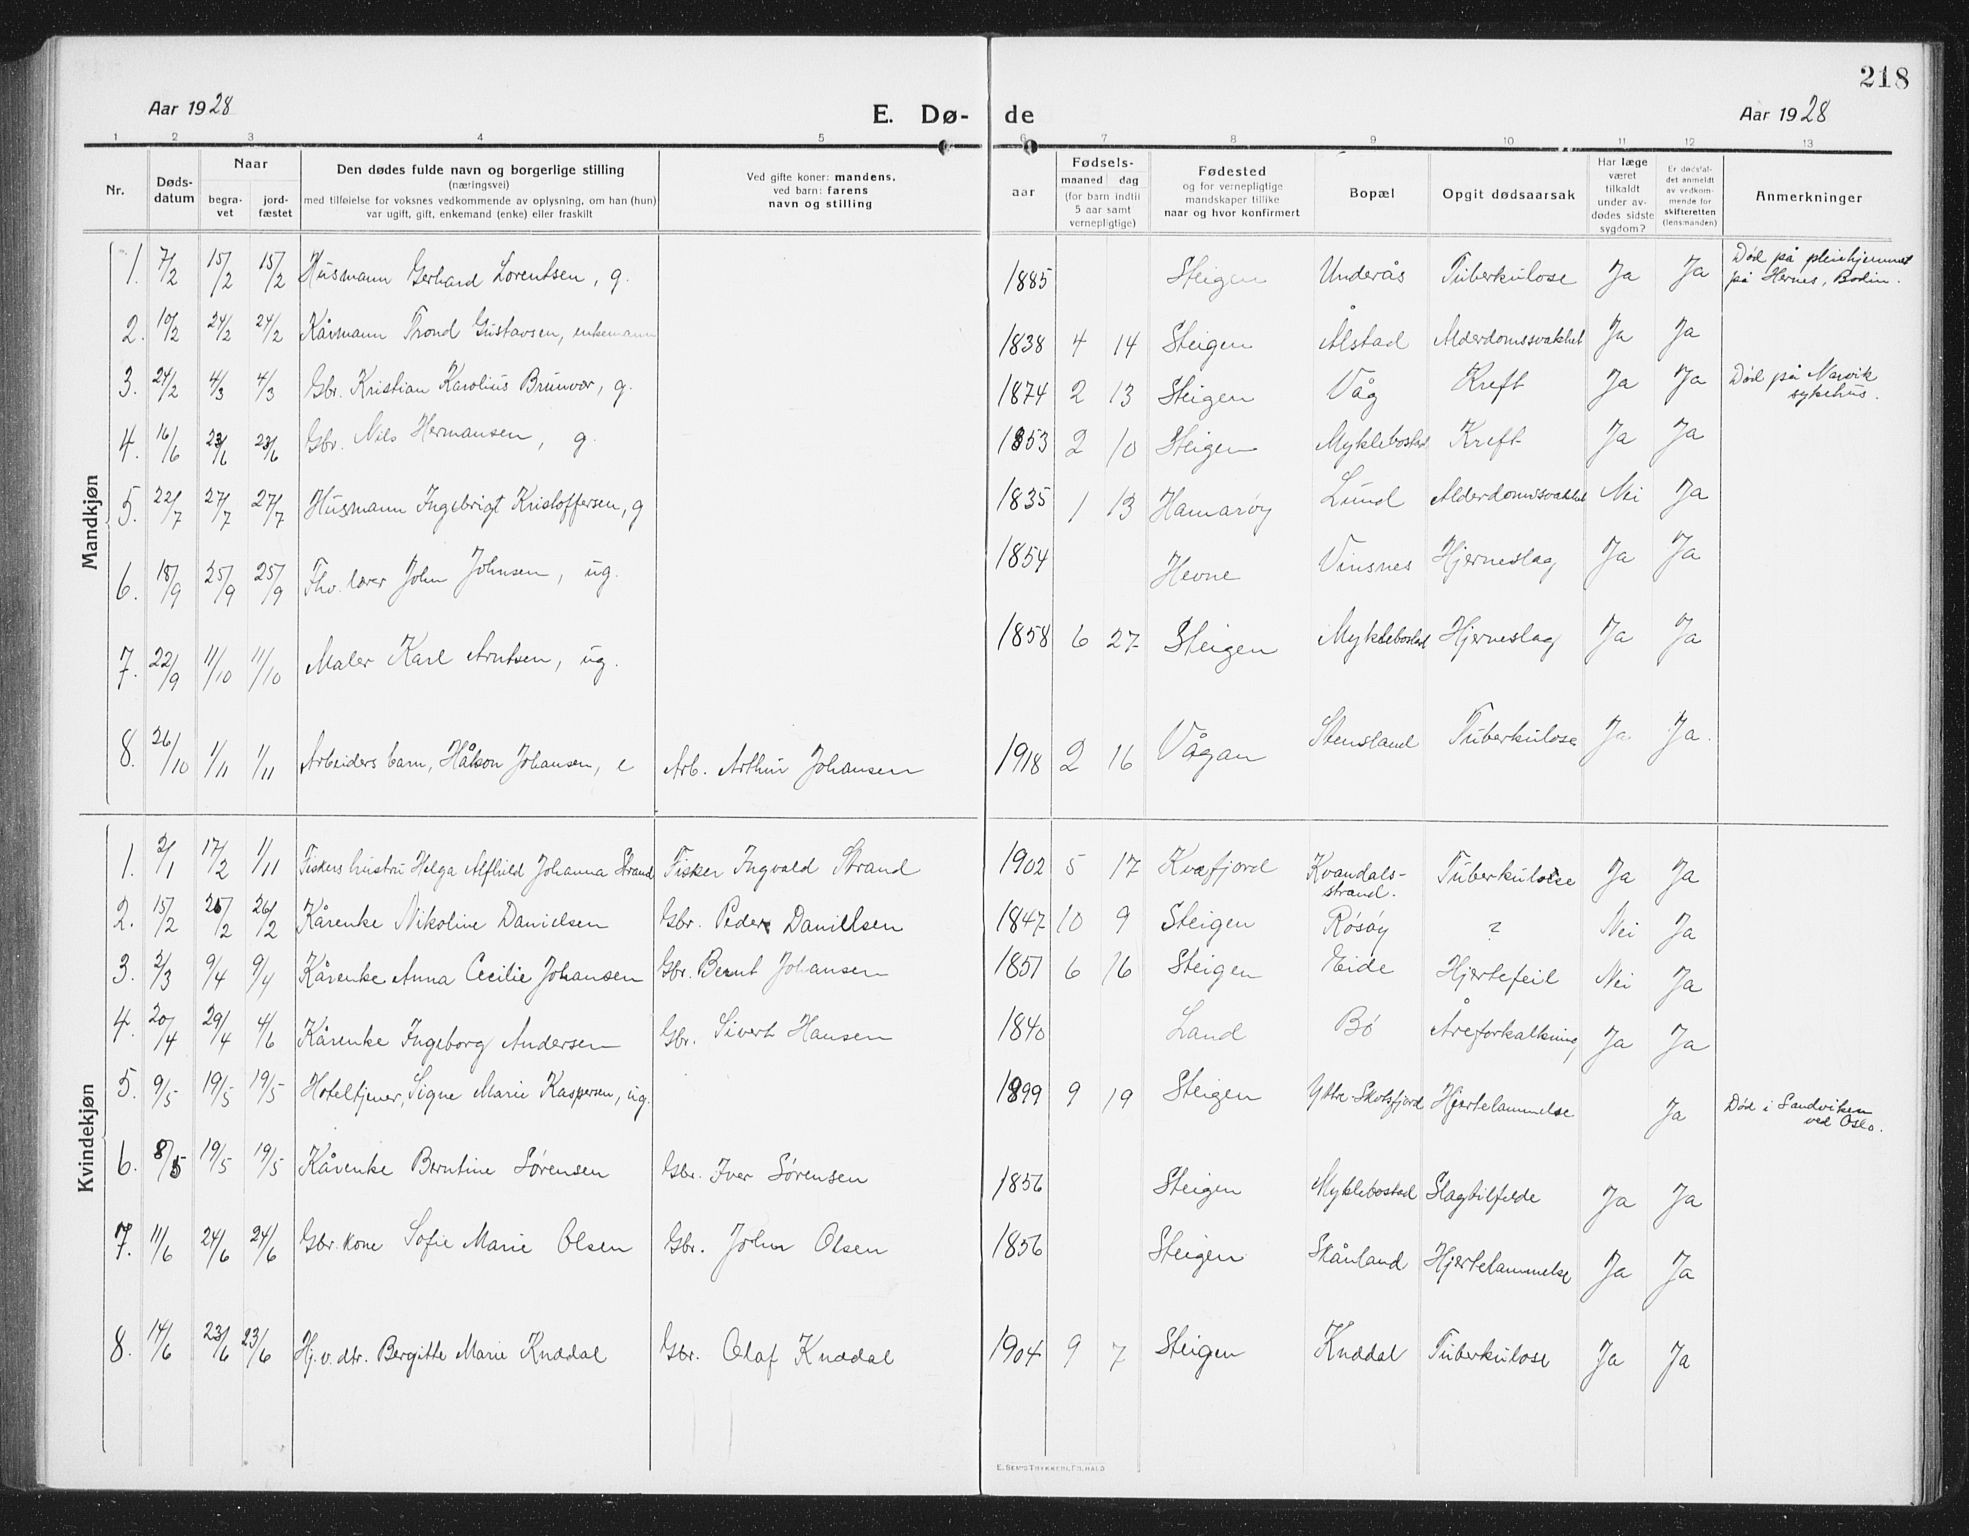 218
Aar 1928 E. Dø- de Aar 1928
1 2 3 4 5 6 7 8 9 10 11 12 13
Nr. Dødsdatum Naar begravet jordfæstet
Den dødes fulde navn og borgerlige stilling
(næringsvei)
med tilføielse for voksnes vedkommende av oplysning, om han (hun)
var ugift, gift, enkemand (enke) eller fraskilt
Ved gifte koner: mandens,
ved barn: farens
navn og stilling
Fødsels-
aar maaned dag
(for barn indtil
5 aar samt
vernepligtige)
Fødested
og for vernepligtige
mandskaper tillike
naar og hvor konfirmert
Bopæl
Opgit dødsaarsak
Har læge
været
tilkaldt
under av-
dødes sidste
sygdom?
Er dødsfal-
det anmeldt
av vedkom-
mende for
skifteretten
(lensmanden)
Anmerkninger
Mandkjøn
1. 7/2 15/2 15/2 Husmann Gerhard Lorentsen, g. 1885 Steigen Underås Tuberkulose Ja Ja Død på pleiehjemmet på Hernes, Bodin.
2. 10/2 24/2 24/2 Kårmann Trond Gustavsen, enkemann 1838 4 14 Steigen Ålstad Alderdomssvakhet Ja Ja
3. 24/2 4/3 4/3 Gbr. Kristian Karolius Brunvær, g. 1874 2 13 Steigen Våg Kreft Ja Ja Død på Narvik sykehus.
4. 16/6 23/6 23/6 Gbr. Nils Hermansen, g. 1853 2 10 Steigen Myklebostad Kreft Ja Ja
5. 22/7 27/7 27/7 Husmann Ingebrigt Kristoffersen, g 1835 1 13 Hamarøy Lund Alderdomssvakhet Nei Ja
6. 18/9 25/9 25/9 Fhv. lærer John Johnsen, ug. 1854 Hevne Vinsnes Hjerneslag Ja Ja
7. 22/9 11/10 11/10 Maler Karl Arntsen, ug. 1858 6 27 Steigen Myklebostad Hjerneslag Ja Ja
8. 26/10 1/11 1/11 Arbeiders barn, Håkon Johansen, e Arb. Arthur Johansen 1918 2 16 Vågan Stensland Tuberkulose Ja. Ja.
Kvindekjøn
1. 2/1 17/2 1/11 Fiskers hustru Helga Alfhild Johanna Strand Fisker Ingvald Strand 1902 5 17 Kvæfjord Kvandals-strand. Tuberkulose Ja Ja
2. 15/2 26/2 26/2 Kårenke Nikoline Danielsen Gbr. Peder Daniellsen 1847 10 9 Steigen Røsøy ? Nei Ja
3. 2/3 9/4 9/4 Kårenke Anna Cecilie Johansen Gbr. Bernt Johansen 1851 6 16 Steigen Eide Hjertefeil Nei Ja
4. 20/4 29/4 4/6 Kårenke Ingeborg Andersen Gbr. Sivert Hansen 1840 Land Bø Åreforkalkning Ja Ja
5. 9/5 19/5 19/5 Hoteltjener, Signe Marie Kaspersen, ug. 1899 9 19 Steigen Yttre-Skotsfjord Hjertelammelse Ja Død i Sandviken ved Oslo.
6. 8/5 19/5 19/5 Kårenke Berntine Sørensen Gbr. Iver Sørensen 1856 Steigen Myklebostad Slagtilfelde Ja Ja
7. 11/6 24/6 24/6 Gbr. kone Sofie Marie Olsen Gbr. John Olsen 1856 Steigen Skånland Hjertelammelse Ja Ja
8. 14/6 23/6 23/6 Hj.v. dtr. Bergitte Marie Knædal Gbr. Olaf Knædal 1904 9 7 Steigen Knædal Tuberkulose Ja Ja